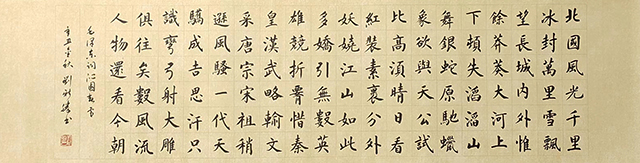 北國風光千里
冰封萬里雪飄
望長城内外惟
餘莽莽大河上
下頓失滔滔山
舞銀蛇原馳蠟
象欲與天公試
比高須晴日看
紅裝素裹分外
妖嬈江山如此
多嬌引無數英
雄競折腰惜秦
皇漢武略輸文
采唐宗宋祖稍
遜風騷一代天
驕成吉思汗只
識彎弓射大雕
俱往矣數風流
人物還看今朝
毛澤東詞沁園春雪
辛丑 秋 劉 書